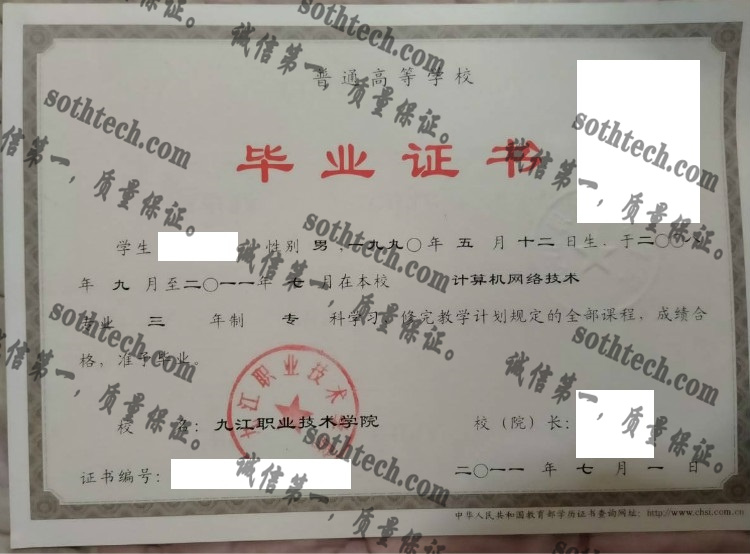 普通高等学校
毕业证书
学生 性别 男，一九九〇年 五 月 十二 日生，于二〇〇八
年 九 月至二〇一一年 七 月在本校 计算机网络技术
专业 三 年制 专 科学习，修完教学计划规定的全部课程，成绩合
格，准予毕业。
校 名：九江职业技术学院 校（院）长：
证书编号： 二〇一一 年 七 月 一 日
中华人民共和国教育部学历证书查询网址：http://www.chsi.com.cn
九江职业技术
sothtech.com
诚信第一，质量保证。
sothtech.com
诚信第一，质量保证。
sothtech.com
诚信第一，质量保证。
sothtech.com
诚信第一，质量保证。
sothtech.com
诚信第一，质量保证。
sothtech.com
诚信第一，质量保证。
sothtech.com
诚信第一，质量保证。
sothtech.com